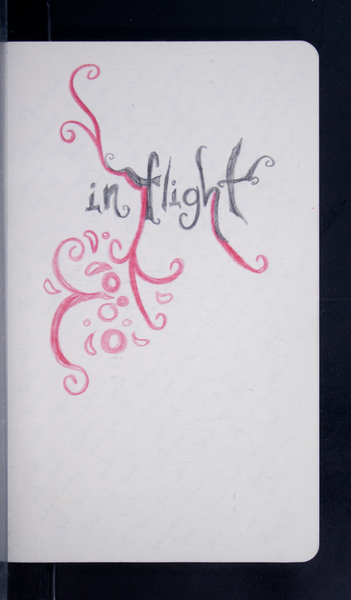 in flight